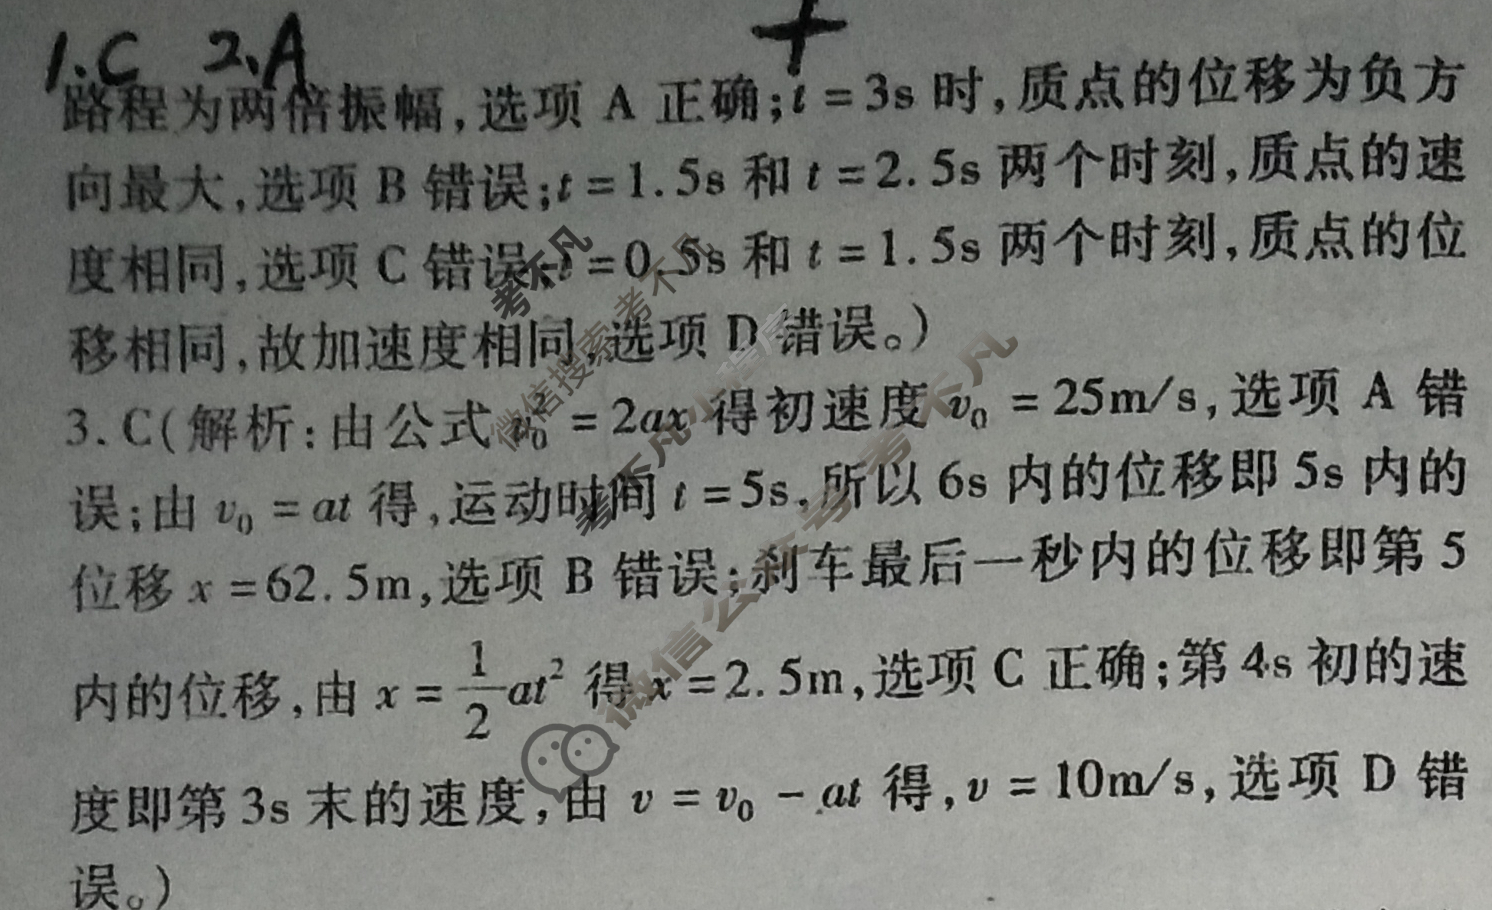 1.C 2.A
路程为两倍振幅,选项 A 正确;t=3s 时,质点的位移为负方
向最大,选项 B 错误;t=1.5s 和 t=2.5s 两个时刻,质点的速
度相同,选项 C 错误;t=0.5s 和 t=1.5s 两个时刻,质点的位
移相同,故加速度相同,选项 D 错误。)
3.C(解析:由公式 v₀²=2ax 得初速度 v₀=25m/s,选项 A 错
误;由 v₀=at 得,运动时间 t=5s,所以 6s 内的位移即 5s 内的
位移 x=62.5m,选项 B 错误;刹车最后一秒内的位移即第 5
内的位移,由 x=1/2at² 得 x=2.5m,选项 C 正确;第 4s 初的速
度即第 3s 末的速度,由 v=v₀-at 得,v=10m/s,选项 D 错
误。)
考不凡
微信搜索考不凡
考不凡小程序
微信公众号考不凡